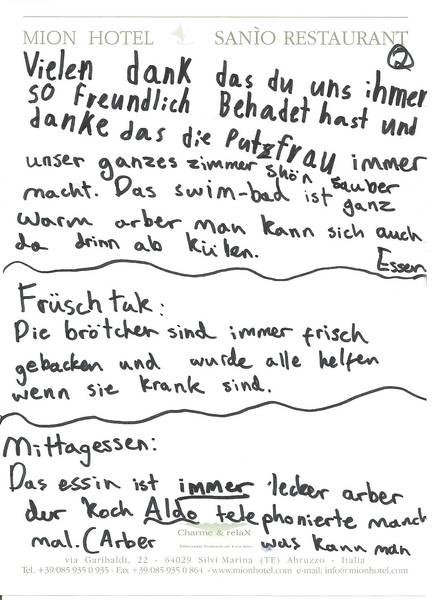 MION HOTEL SANÌO RESTAURANT
2
Vielen dank das du uns ihmer
so freundlich Behadet hast und
danke das die Putzfrau immer
unser ganzes zimmer shön sauber
macht. Das swim-bad ist ganz
warm arber man kann sich auch
da drinn ab külen.
Essen
Früschtuk:
Die brötcher sind immer frisch
gebacken und wurde alle helfen
wenn sie krank sind.
Mittagessen:
Das essin ist immer lecker arber
der Koch Aldo telephonierte manch
mal. (Arber was kann man
Charme & relaX
via Garibaldi, 22 - 64029 Silvi Marina (TE) Abruzzo - Italia
Tel. +39/085 935 0 935 - Fax +39/085 935 0 864 - www.mionhotel.com e-mail: info@mionhotel.com